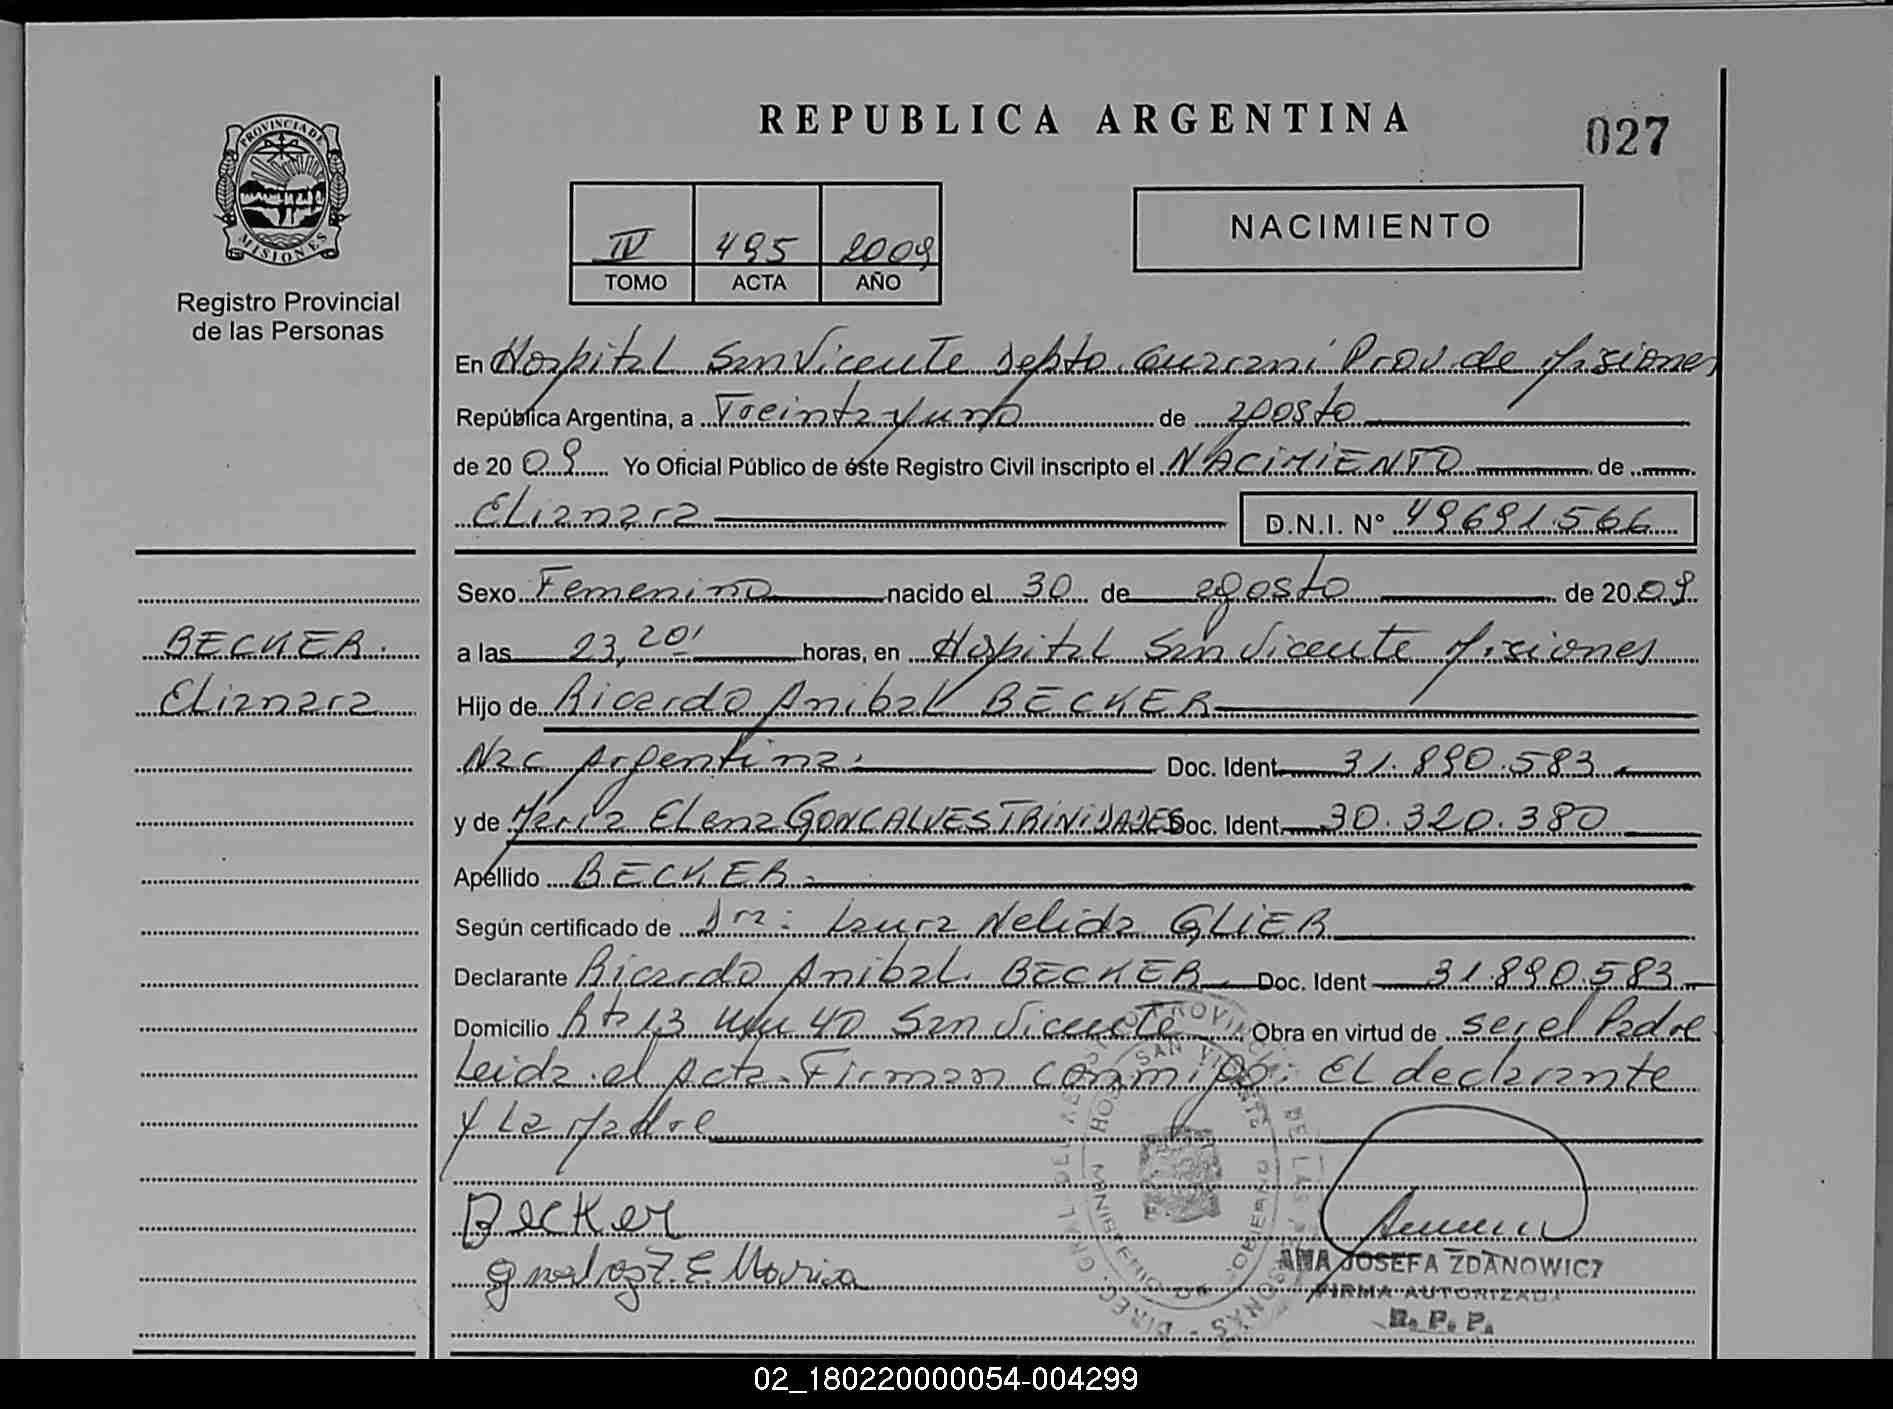 REPUBLICA ARGENTINA
027
PROVINCIA DE
MISIONES
Registro Provincial
de las Personas
IV 495 2009
TOMO ACTA AÑO
NACIMIENTO
En Hospital San Vicente Depto. Guarani Prov. de Misiones
República Argentina, a Treinta y uno de agosto
de 2009 Yo Oficial Público de éste Registro Civil inscripto el NACIMIENTO de
Elianara D.N.I. N° 49691566
Sexo Femenino nacido el 30 de agosto de 2009
a las 23,20' horas, en Hospital San Vicente Misiones
BECKER.
Elianara
Hijo de Ricardo Anibal BECKER
Nac Argentina. Doc. Ident 31.890.583
y de Maria Elena GONCALVES TRINIDADES Doc. Ident. 30.320.380
Apellido BECKER.
Según certificado de Dra: Laura Nelida GLIER
Declarante Ricardo Anibal. BECKER Doc. Ident 31.890.583
Domicilio Rta 13 Km 40 San Vicente Obra en virtud de ser el Padre
Leida el Acta. Firman conmigo: El declarante
y La Madre
Becker
E Maria
ANA JOSEFA ZDANOWICZ
FIRMA AUTORIZADA
R. P. P.
02_180220000054-004299